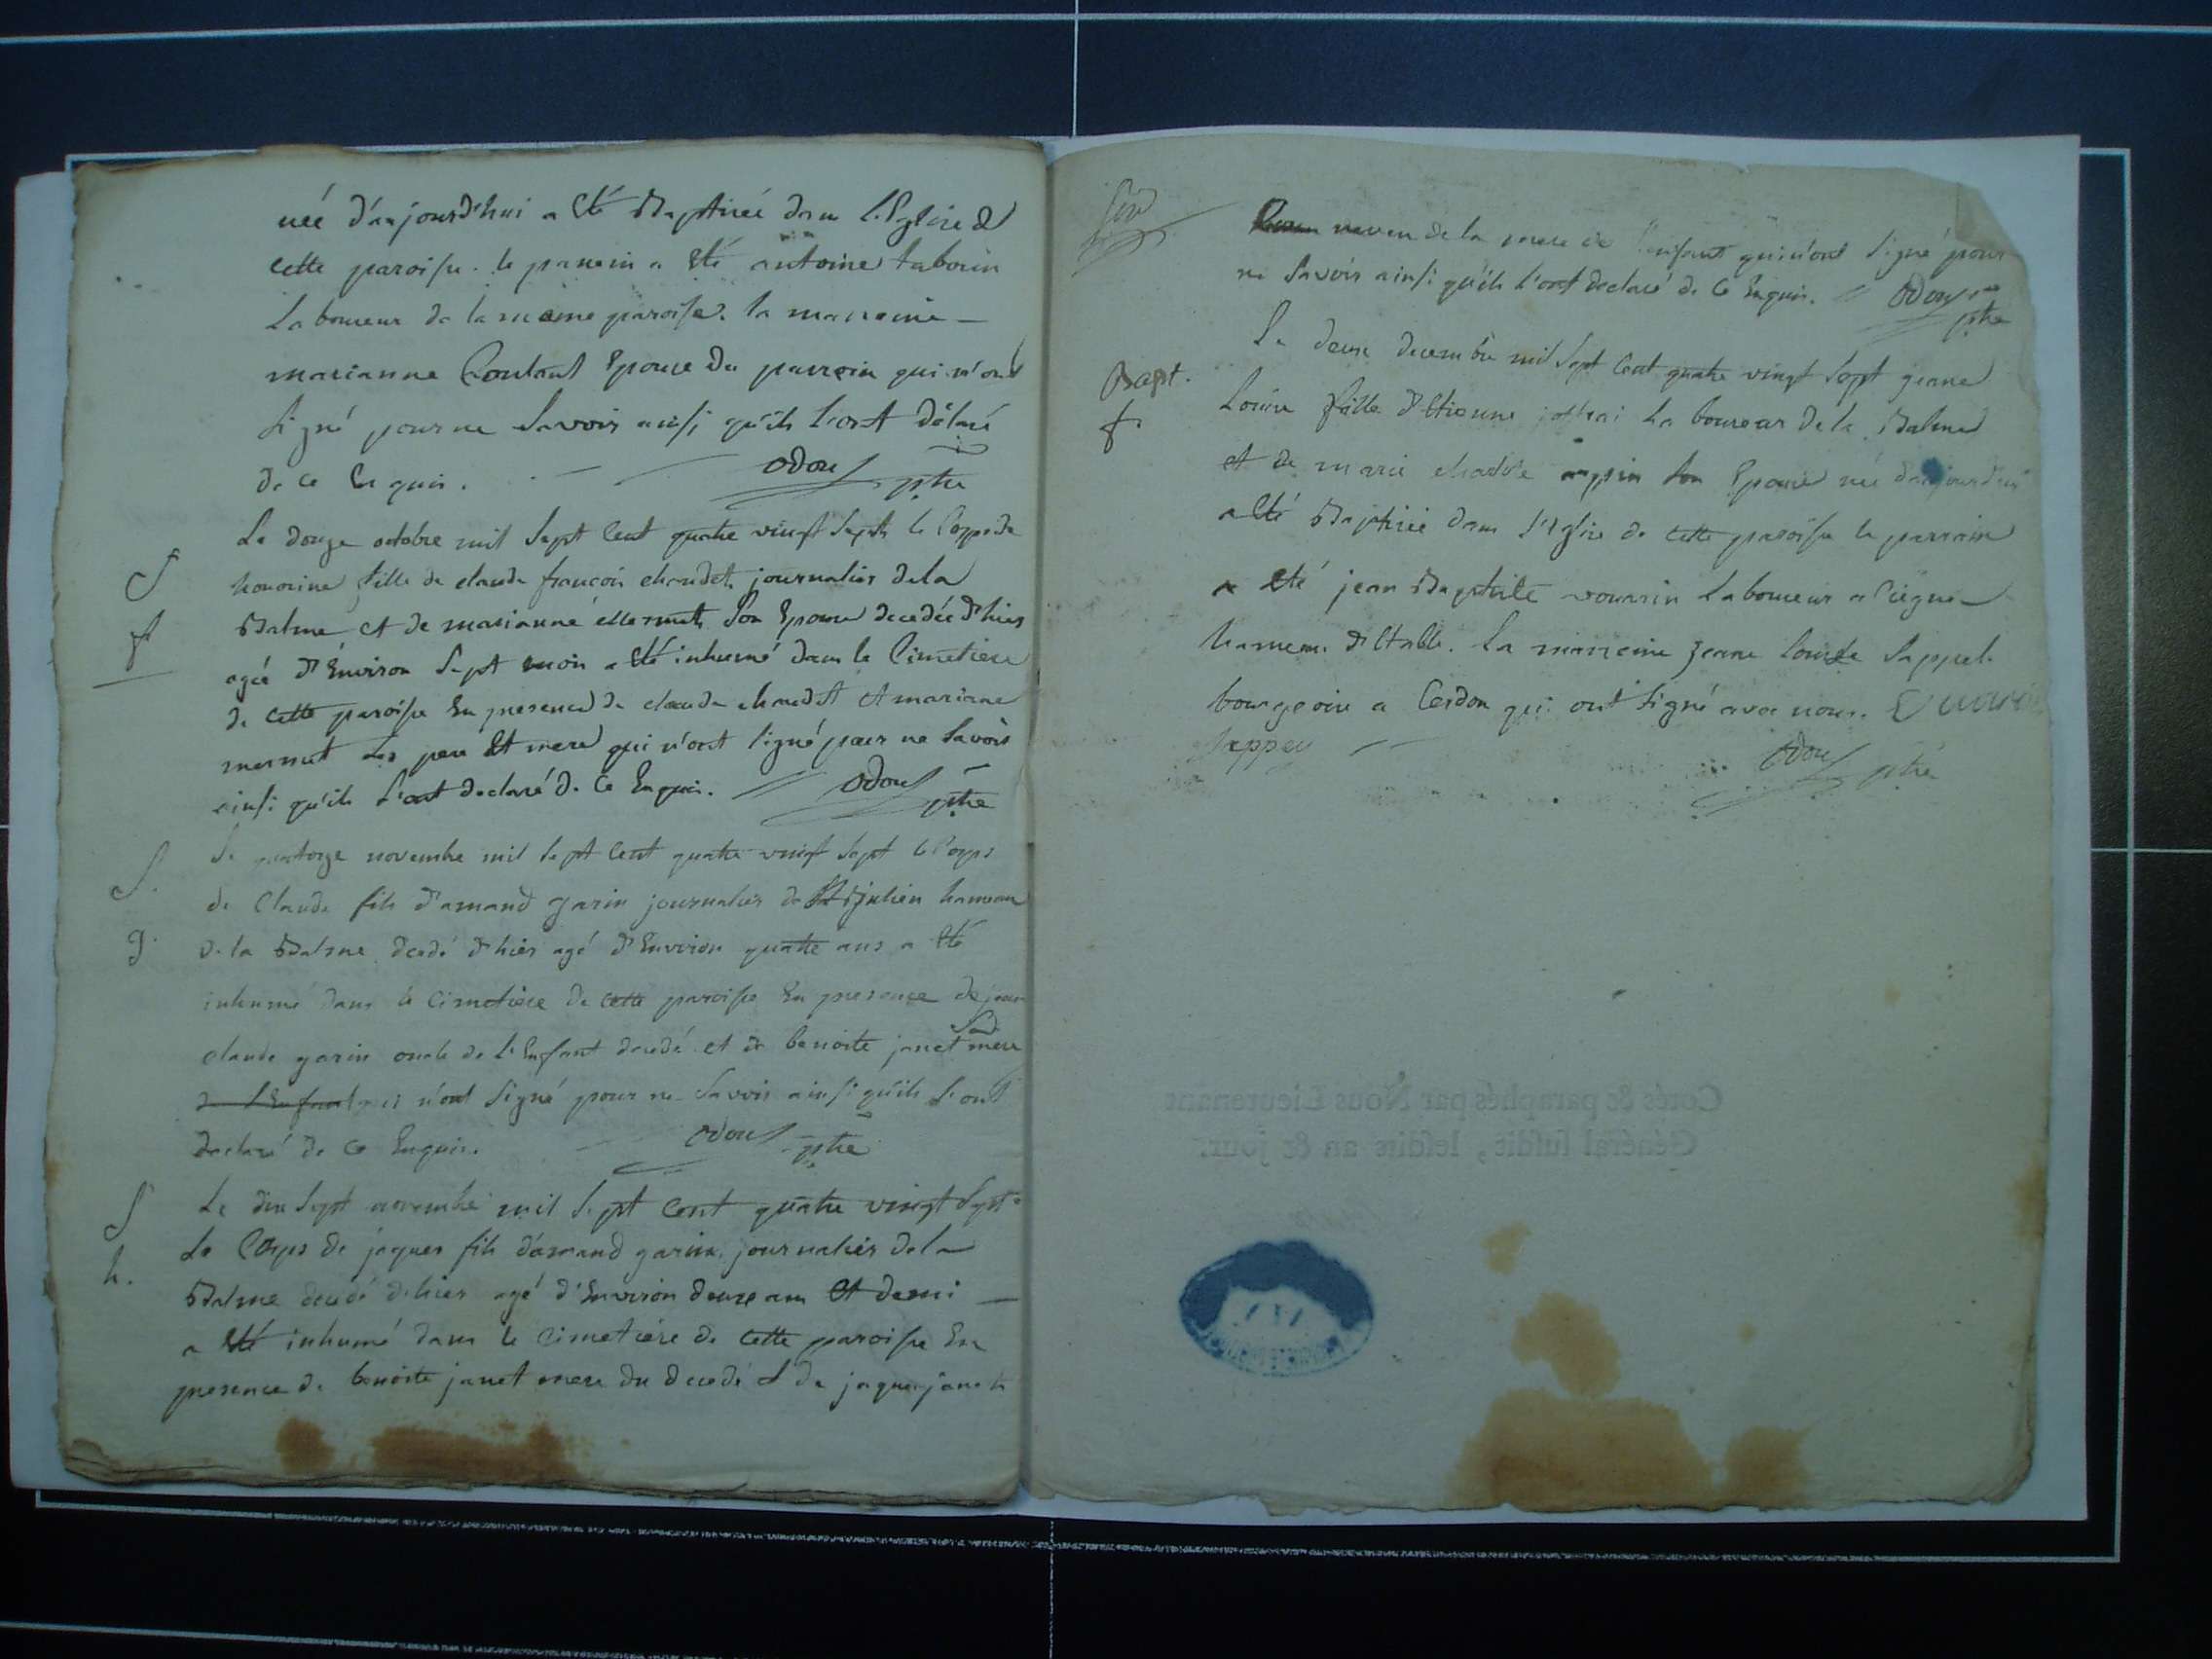 née d'aujourd'hui a été Baptisée dans l'Eglise de
cette paroisse. le parrain a été antoine tabouin
Laboureur de la meme paroisse. la marreine
marianne Coutant Epouse du parrein qui n'ont
signé pour ne savoir ainsi qu'ils l'ont déclaré
de ce Enquis. odou ptre
Le douze octobre mil sept cent quatre vingt sept le corps de
S
honorine fille de claude françois chaudet journalier de la
f
Balme et de marianne mermet son Epouse decedée d'hier
agée d'Environ sept mois a été inhumé dans le Cimetiere
de cette paroisse En presence de claude chaudet et mariane
mermet ses pere et mere qui n'ont signé pour ne savoir
ainsi qu'ils l'ont declaré de ce Enquis. odou ptre
S.
Le quatorze novembre mil sept cent quatre vingt sept le Corps
de Claude fils d'amand garin journalier de St julien hameau
g.
de la Balme decedé d'hier agé d'Environ quatre ans a été
inhumé dans le Cimetiere de cette paroisse En presence de jean
claude garin oncle de l'Enfant decedé et de benoite janet sad. mere
de l'Enfant qui n'ont signé pour ne savoir ainsi qu'ils l'ont
declaré de ce Enquis. odou ptre
S
Le dix sept novembre mil sept cent quatre vingt sept
Le Corps de jaques fils d'amand garin journalier de la
h.
Balme decedé d'hier agé d'Environ deux ans et demi
a été inhumé dans le Cimetiere de cette paroisse En
presence de benoite janet mere du decedé et de jaque janet
neveu de la mere de l'enfant qui n'ont signé pour
ne savoir ainsi qu'ils l'ont declaré de ce Enquis. odou ptre
Le deux decembre mil sept cent quatre vingt sept jeanne
Bapt.
Louise fille d'Etienne Laboureur de la Balme
f
et de marie son Epouse née d'aujourd'hui
a été Baptisée dans l'Eglise de cette paroisse le parrain
a été jean Baptiste vouarin Laboureur a
hameau d'Etable. La marreine jeanne Louise sappel
bourgeoise a Cerdon qui ont signé avec nous.
sappey odou ptre
Cotés & paraphés par Nous Lieutenant
Général susdit, lesdits an & jour.